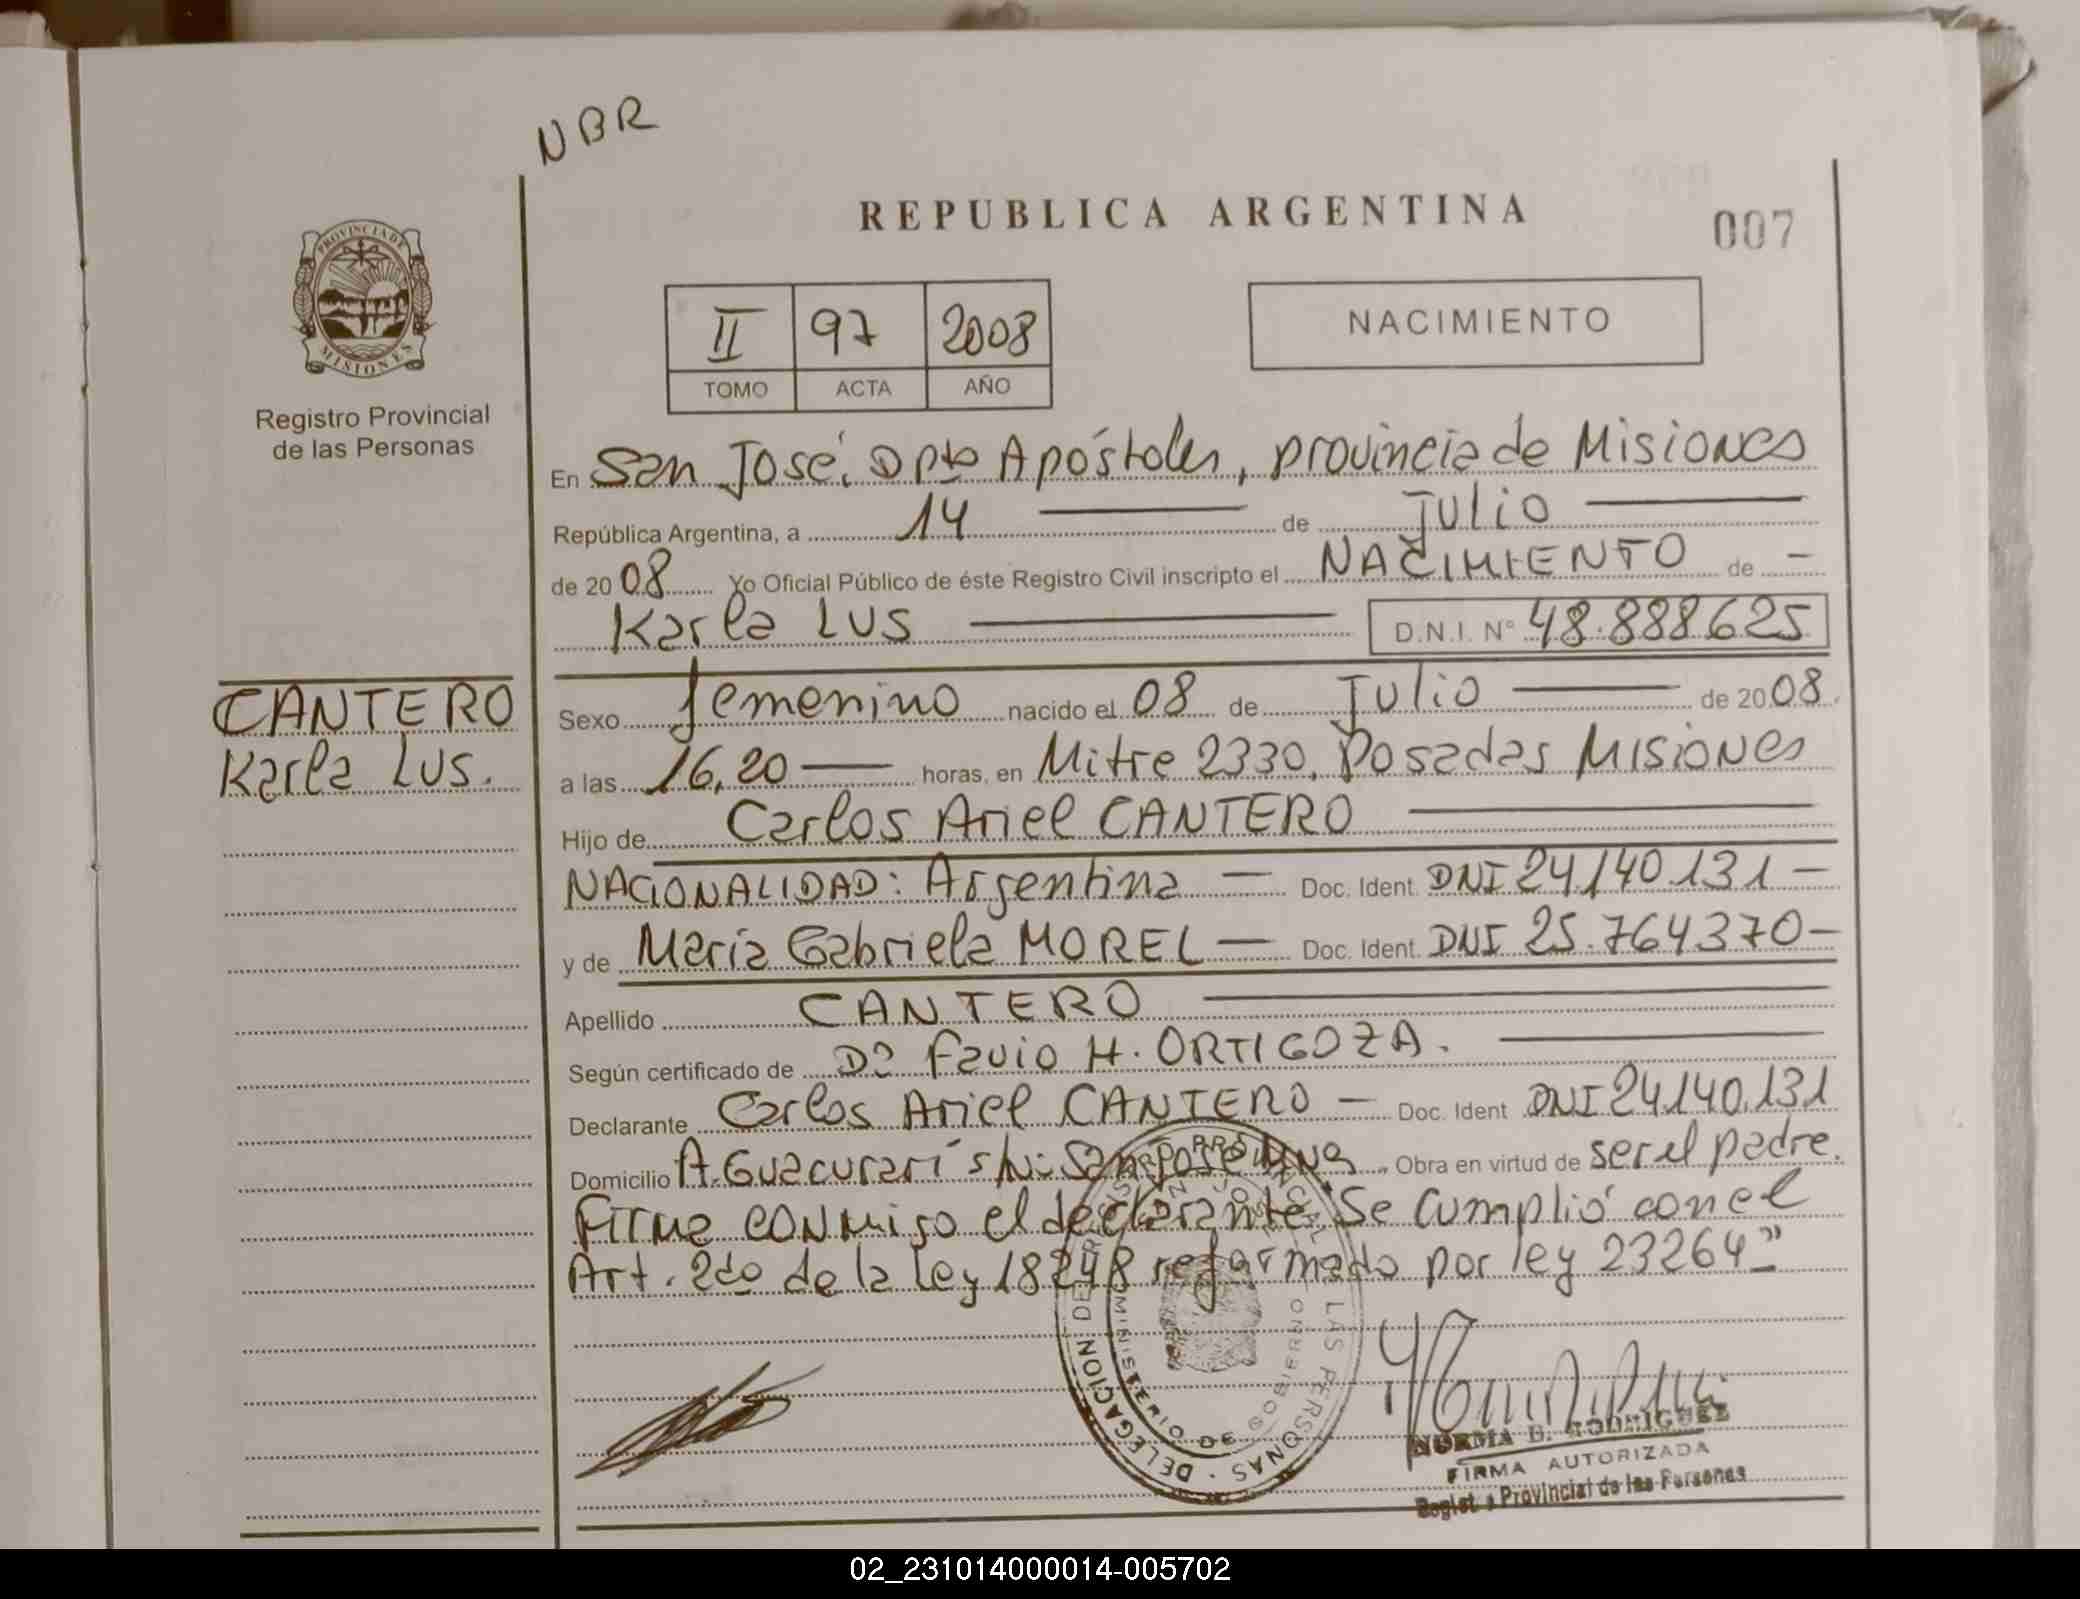 NBR
REPUBLICA ARGENTINA
007
PROVINCIA DE MISIONES
Registro Provincial
de las Personas
II 97 2008
TOMO ACTA AÑO
NACIMIENTO
En San José, Dpto Apóstoles, provincia de Misiones
República Argentina, a 14 de Julio
de 2008 Yo Oficial Público de éste Registro Civil inscripto el NACIMIENTO de
Karla LUS D.N.I. Nº 48.888625
CANTERO
Karla LUS.
Sexo femenino nacido el 08 de Julio de 2008.
a las 16,20 horas, en Mitre 2330, Posadas Misiones
Hijo de Carlos Ariel CANTERO
NACIONALIDAD: Argentina Doc. Ident. DNI 24.140.131
y de María Gabriela MOREL Doc. Ident. DNI 25.764370
Apellido CANTERO
Según certificado de Favio H. ORTIGOZA.
Declarante Carlos Ariel CANTERO Doc. Ident DNI 24.140.131
Domicilio A. Guacurarí s/N: San José Obra en virtud de ser el padre.
Firma conmigo el declarante "Se cumplió con el
Art. 2do de la Ley 18248 reformado por ley 23264"
DELEGACION DE REGISTRO PROVINCIAL DE LAS PERSONAS
MINISTERIO DE GOBIERNO
NORMA B. RODRIGUEZ
FIRMA AUTORIZADA
Registro Provincial de las Personas
02_231014000014-005702